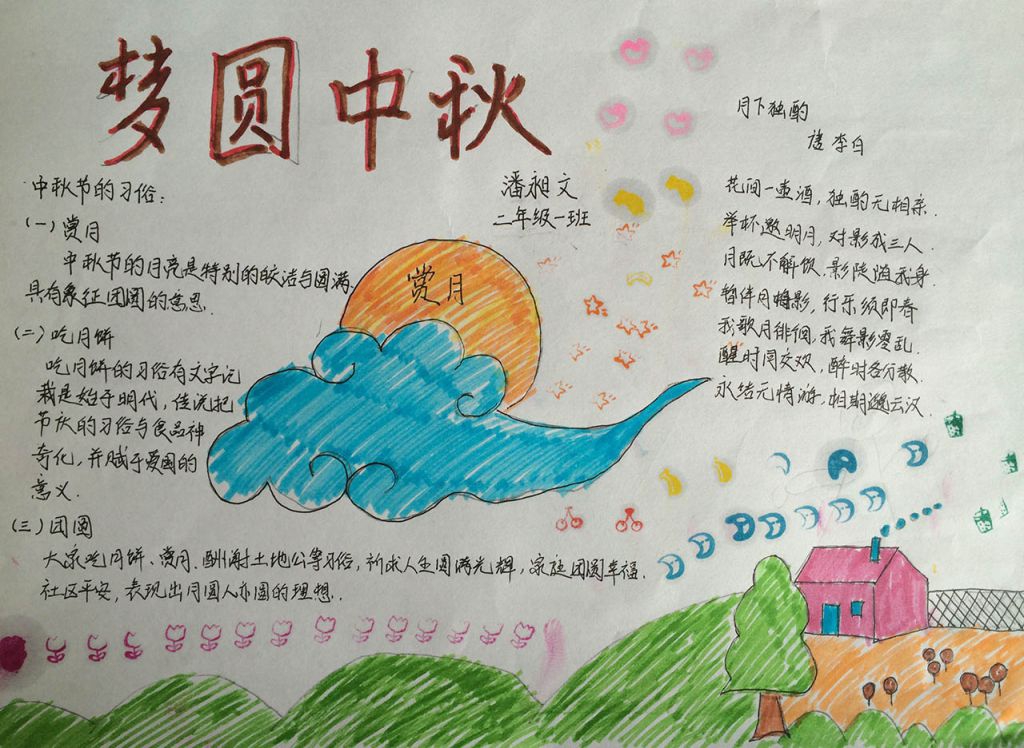 梦圆中秋
中秋节的习俗：
(一)赏月
中秋节的月亮是特别的皎洁与圆满,
具有象征团圆的意思.
(二)吃月饼
吃月饼的习俗有文字记
载是始于明代，传说把
节庆的习俗与食品神
奇化，并赋于爱国的
意义.
(三)团圆
大家吃月饼、赏月、酬谢土地公等习俗，祈求人生圆满光辉，家庭团圆幸福，
社区平安，表现出月圆人亦圆的理想.
潘昶文
二年级一班
赏月
月下独酌
唐 李白
花间一壶酒，独酌无相亲.
举杯邀明月，对影成三人.
月既不解饮，影徒随我身.
暂伴月将影，行乐须即春
我歌月徘徊，我舞影零乱.
醒时同交欢，醉时各分散.
永结无情游，相期邈云汉.